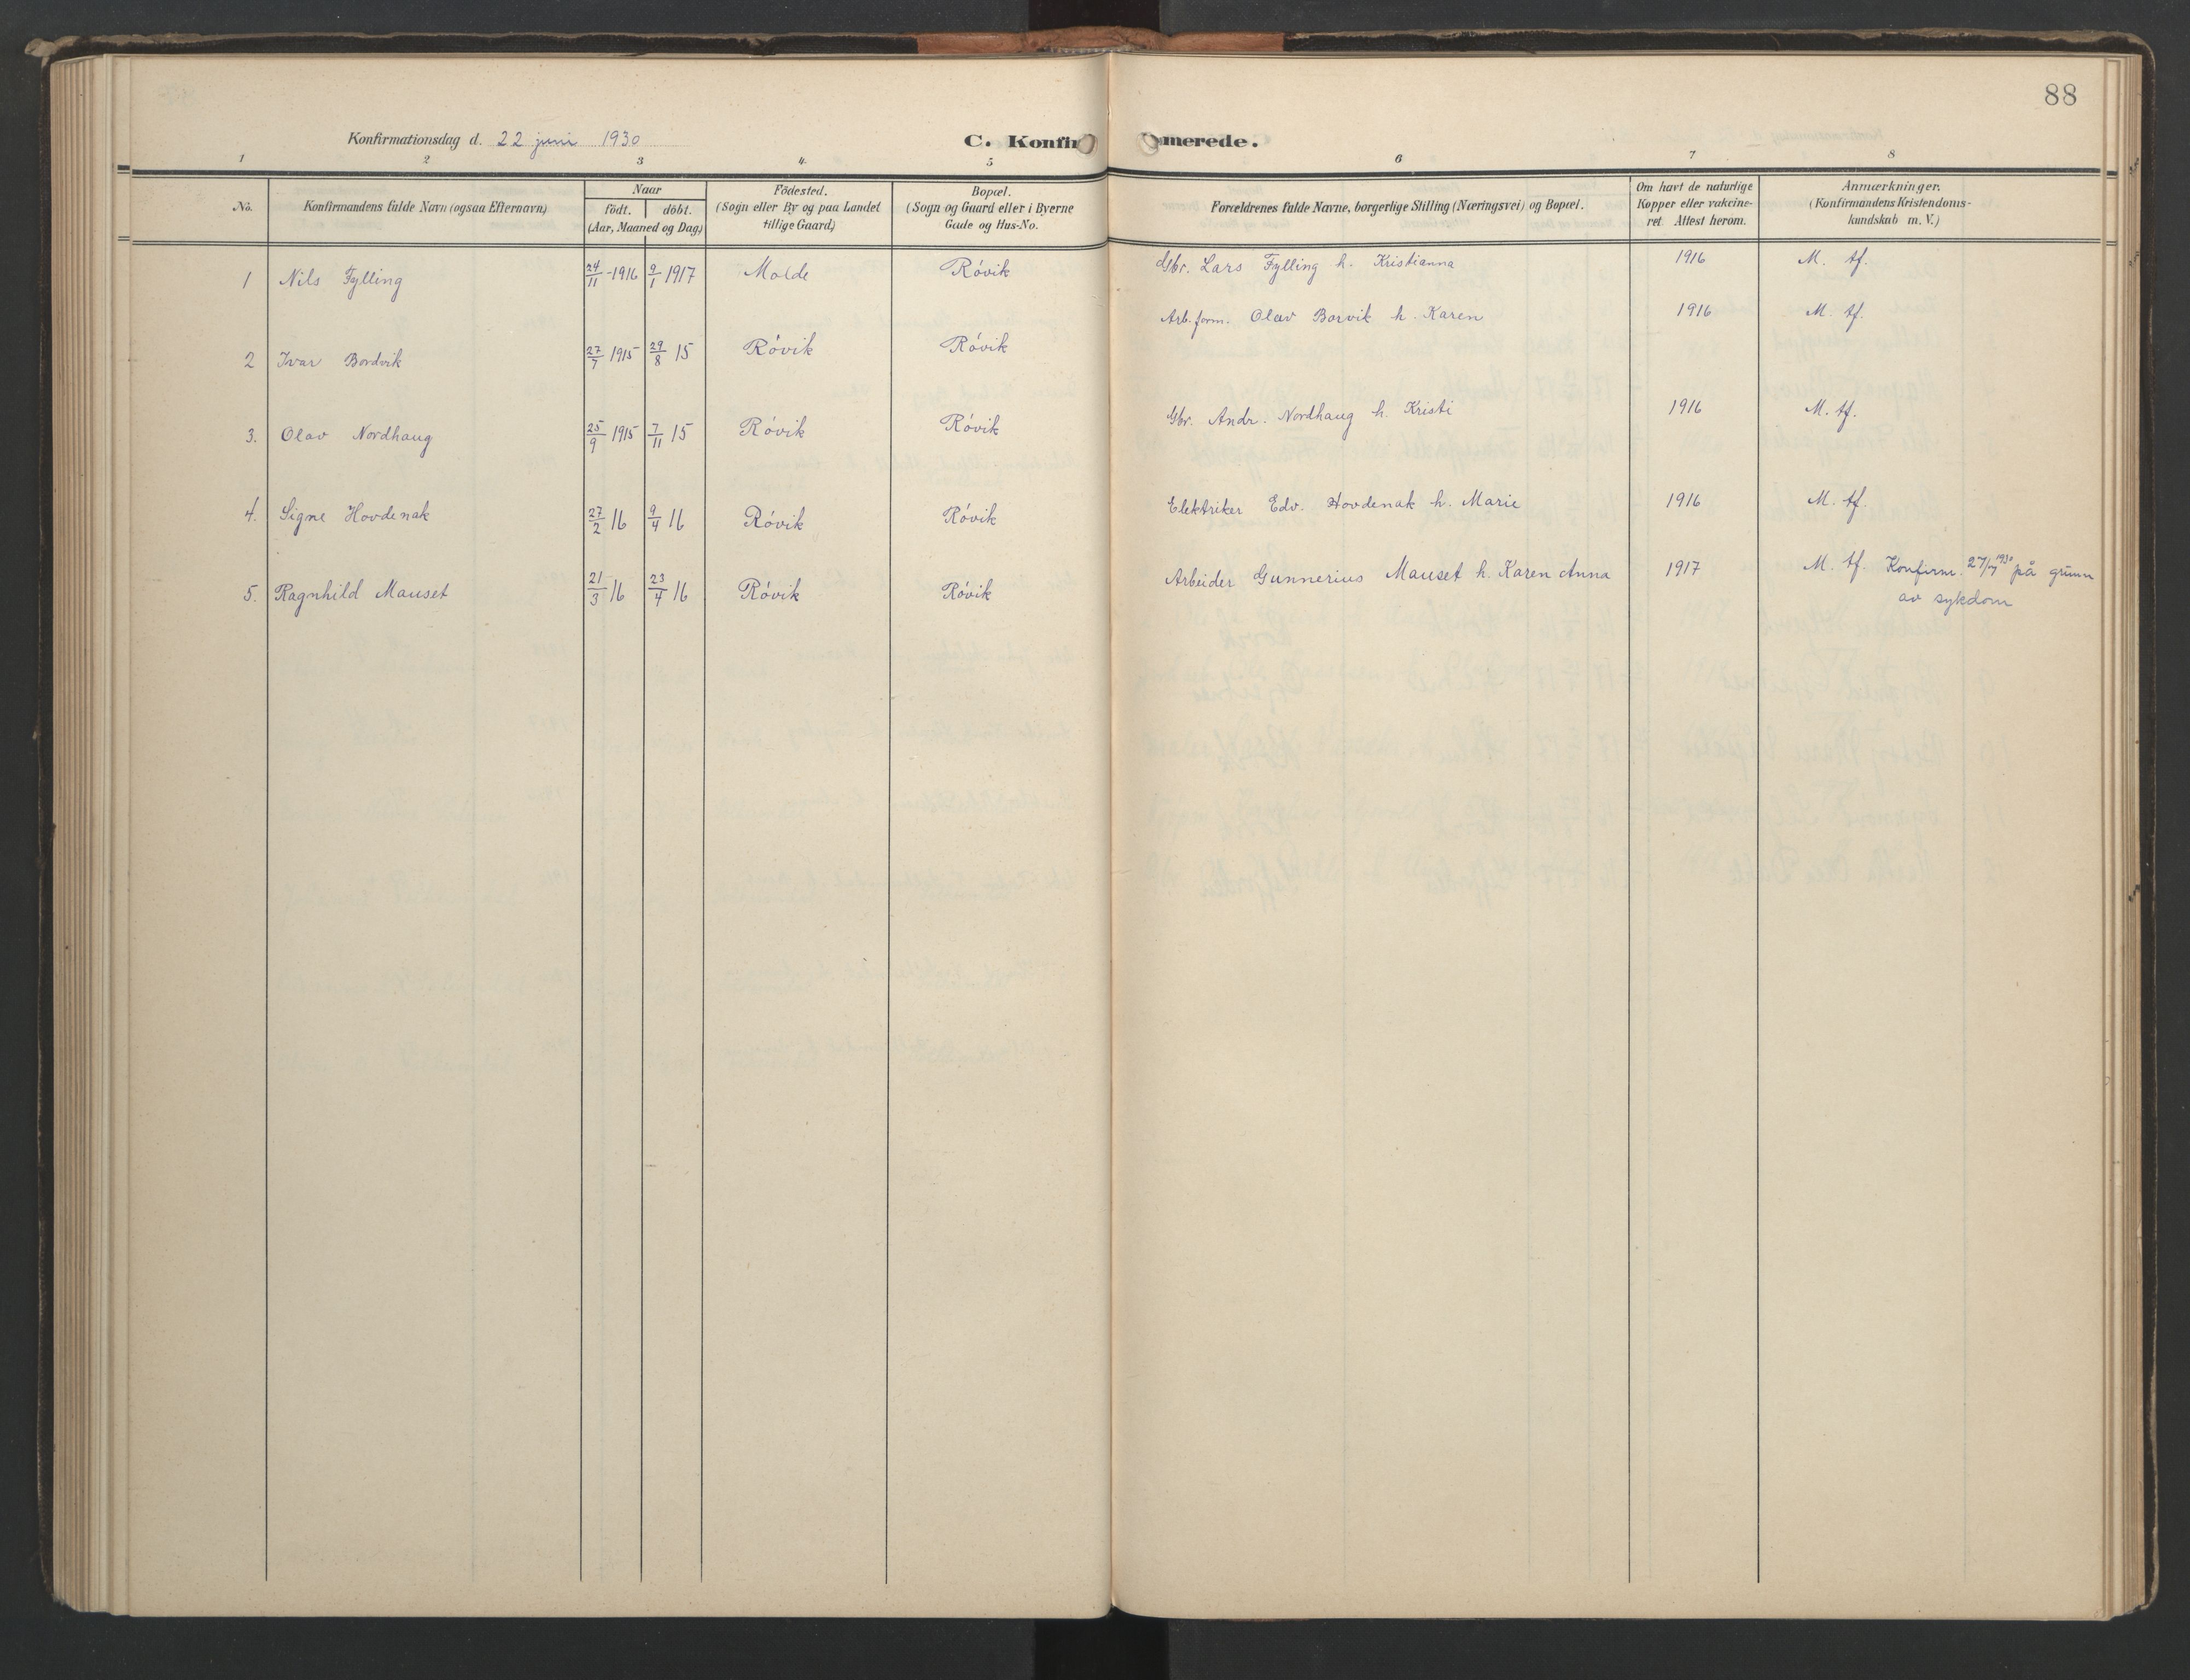 88
Konfirmationsdag d. 22 juni 1930
C. Konfirmerede.
1 2 3 4. 5 6 7 8
No.
Konfirmandens fulde Navn (ogsaa Efternavn)
Naar
födt. döbt.
(Aar, Maaned og Dag)
Födested.
(Sogn eller By og paa Landet
tillige Gaard)
Bopæl.
(Sogn og Gaard eller i Byerne
Gade og Hus-No.
Forældrenes fulde Navne, borgerlige Stilling (Næringsvei) og Bopæl.
Om havt de naturlige
Kopper eller vakcine-
ret. Attest herom.
Anmærkninger.
(Konfirmandens Kristendoms-
kundskab m. V.)
1 Nils Fylling 24/11-1916 9/1 1917 Molde Róvik Gbr. Lars Fylling h. Kristianna 1916 M. tf.
2 Ivar Bordvik 27/7 1915 29/8 15 Róvik Róvik Arb. form. Olav Borvik h. Karen 1916 M. tf.
3. Olav Nordhaug 25/9 1915 7/11 15 Róvik Róvik Gbr. Andr. Nordhaug h. Kristi 1916 M. tf.
4. Signe Hovdenak 27/2 16 9/4 16 Róvik Róvik Elektriker Edv. Hovdenak h. Marie 1916 M. tf.
5. Ragnhild Mauset 21/3 16 23/4 16 Róvik Róvik Arbeider Gunnerius Mauset h. Karen Anna 1917 M. tf. Konfirm. 27/7 1930 på grunn
av sykdom